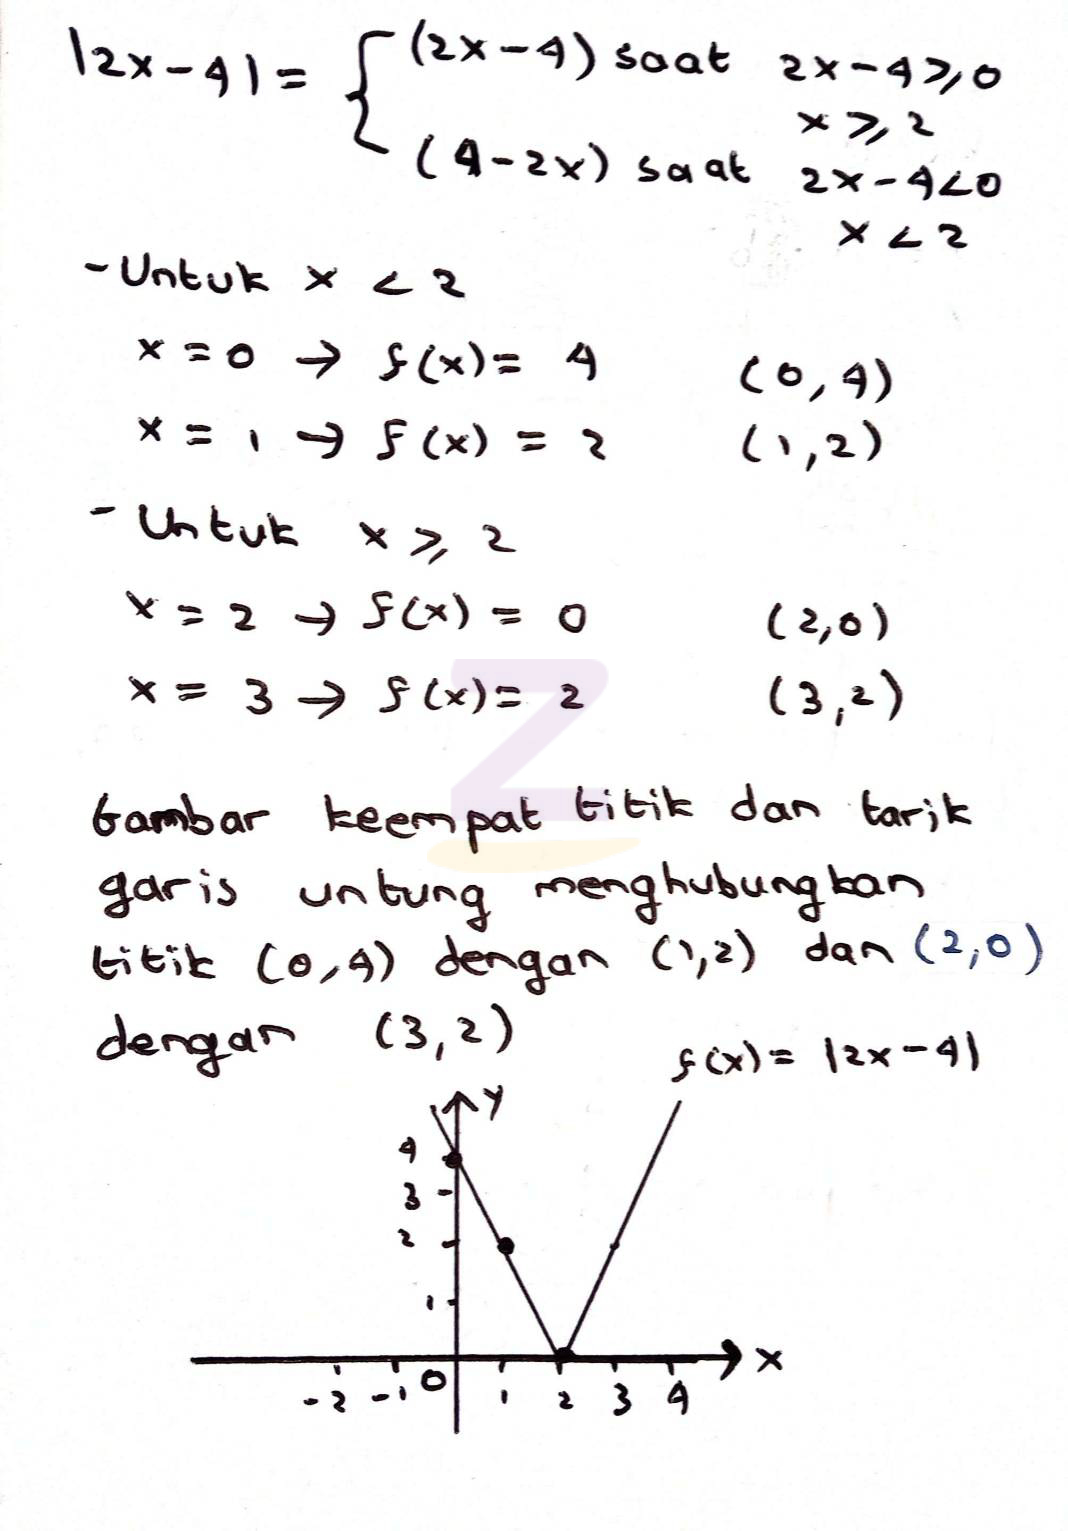 |2x-4| = { (2x-4) saat 2x-4 ≥ 0
x ≥ 2
(4-2x) saat 2x-4<0
x < 2
- Untuk x < 2
x = 0 → f(x) = 4 (0,4)
x = 1 → f(x) = 2 (1,2)
- Untuk x ≥ 2
x = 2 → f(x) = 0 (2,0)
x = 3 → f(x) = 2 (3,2)
Z
Gambar keempat titik dan tarik
garis untung menghubungkan
titik (0,4) dengan (1,2) dan (2,0)
dengan (3,2)
f(x) = |2x-4|
y
4
3
2
1
x
-2 -1 0 1 2 3 4